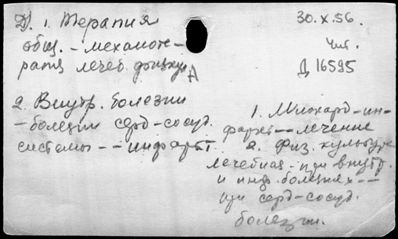 Д. 1. Терапия
общ. - механоте-
рапия лечеб. физкул
30.X.56.
Чит.
Д 16595
2. Внутр. болезни
- болезни серд-сосуд.
системы -- инфаркт
1. Миокард-ин-
фаркт -- лечение
2. Физ. культура
лечебная - при внутр
и инф. болезнях --
при серд-сосуд.
болезни.